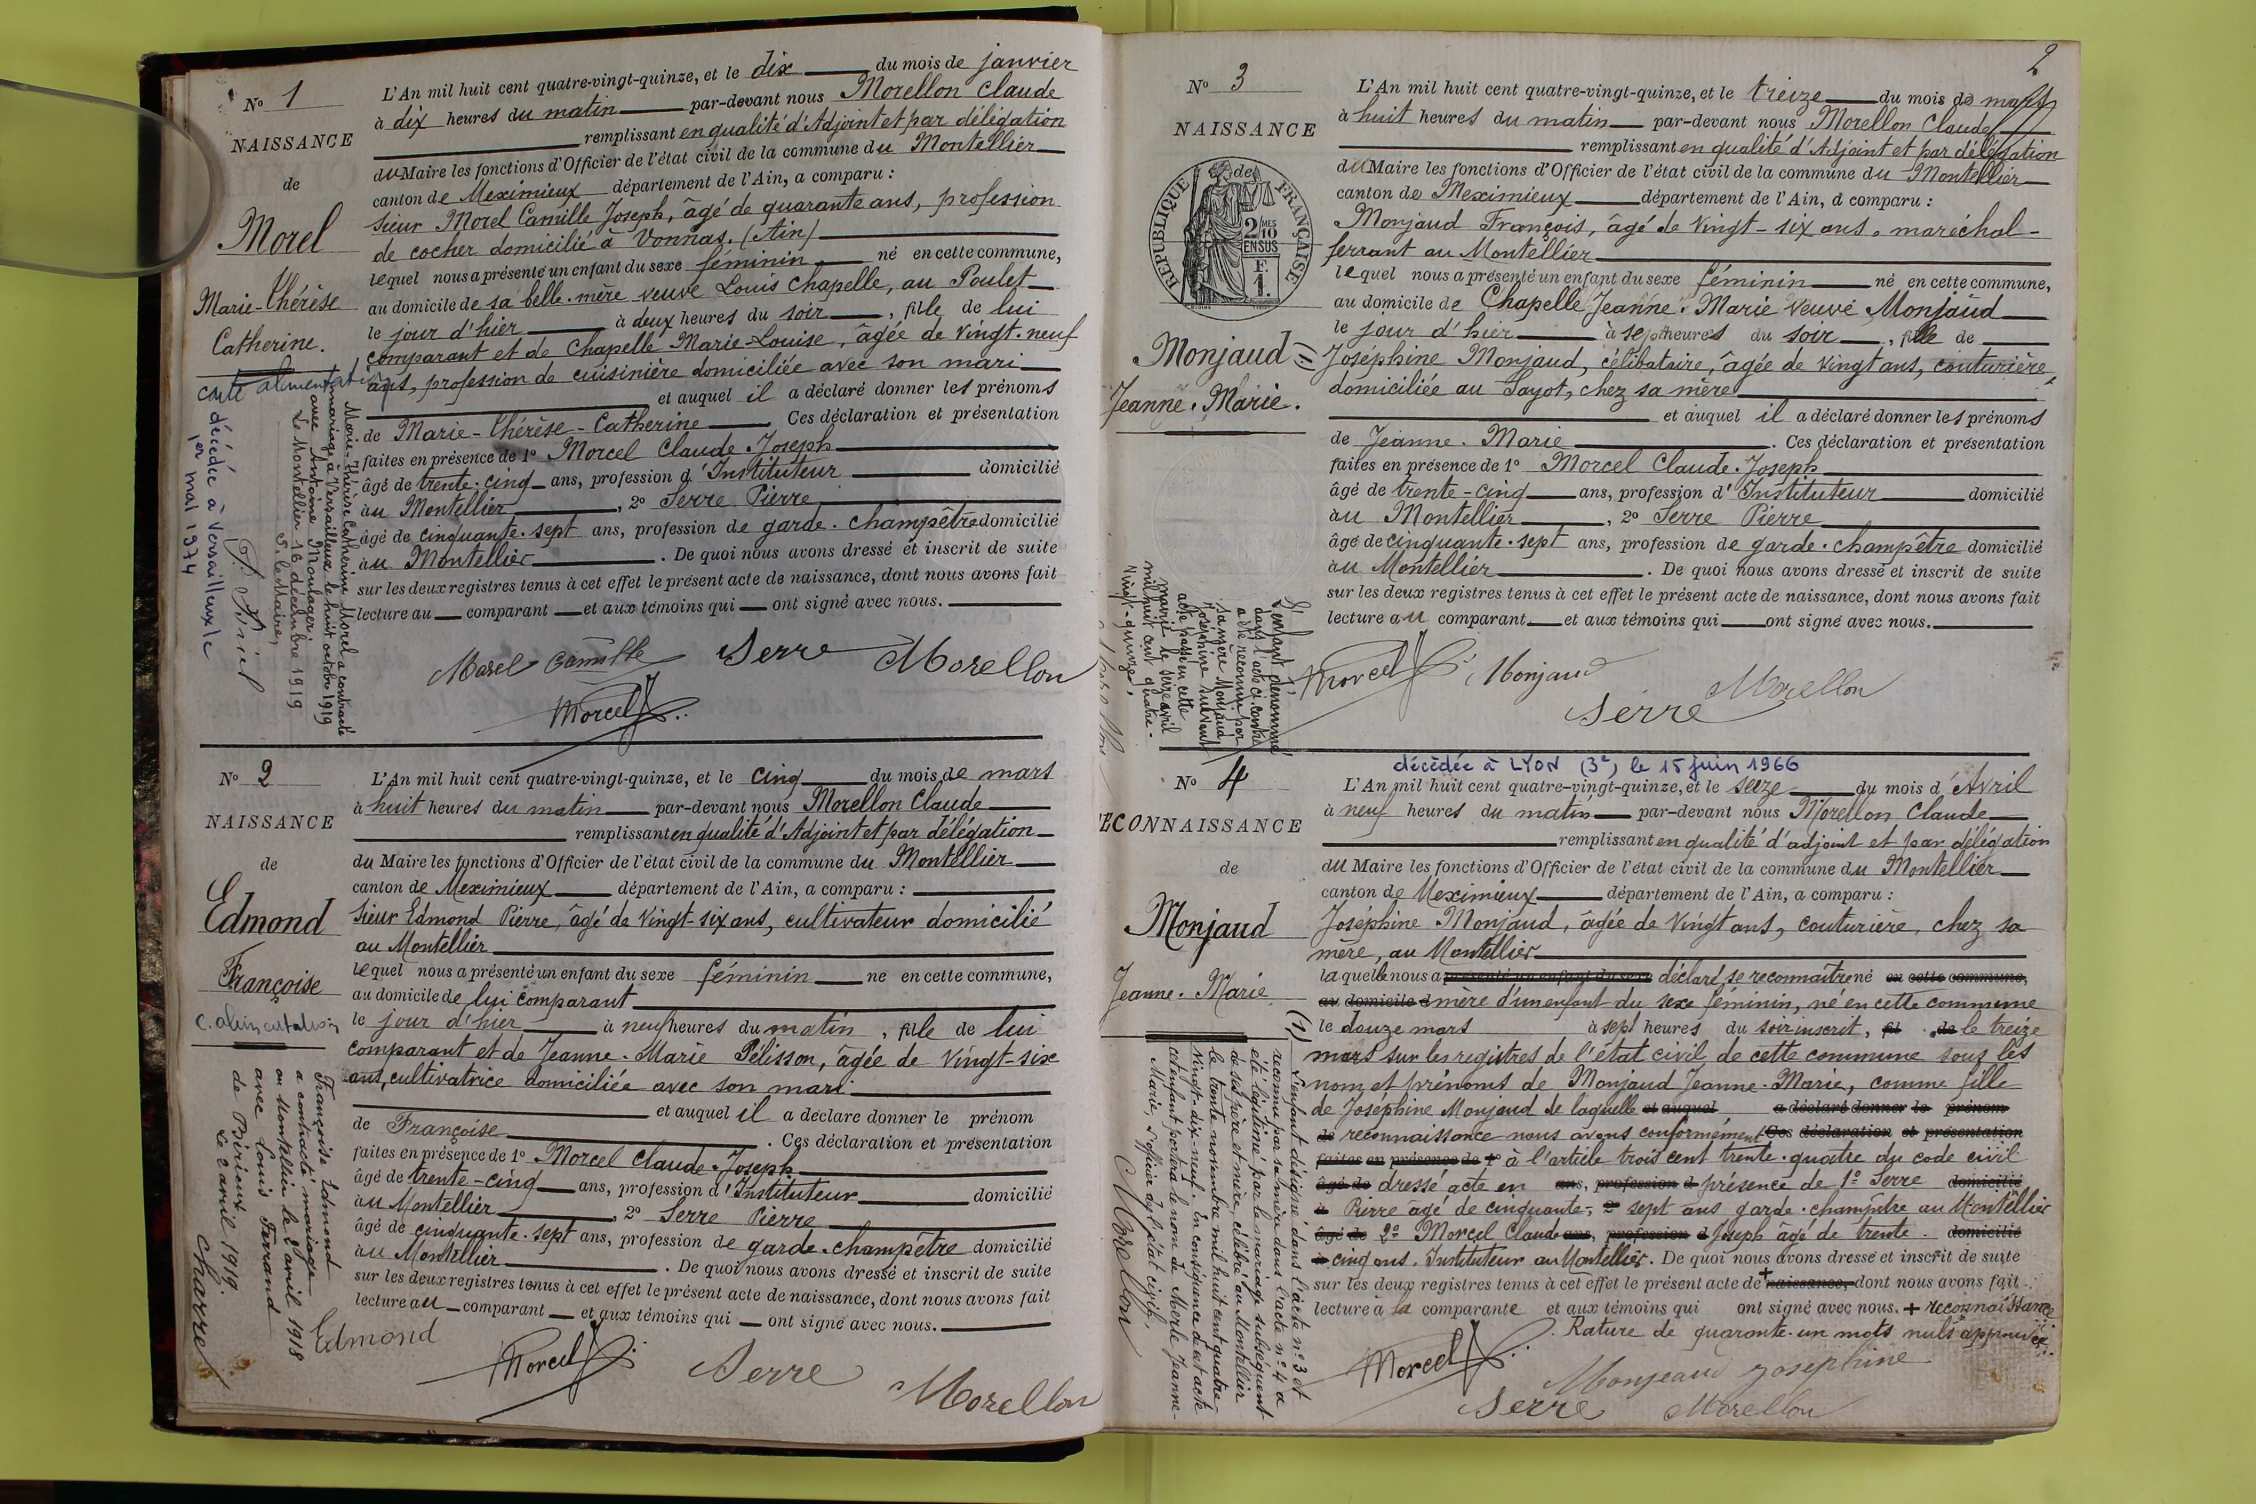 N° 1
NAISSANCE
de
Morel
Marie-Thérèse
Catherine.
carte alimentation
L'An mil huit cent quatre-vingt-quinze, et le dix du mois de janvier
à dix heures du matin par-devant nous Morellon Claude
remplissant en qualité d'Adjoint et par délégation
du Maire les fonctions d'Officier de l'état civil de la commune du Montellier
canton de Meximieux département de l'Ain, a comparu :
Sieur Morel Camille Joseph, âgé de quarante ans, profession
de cocher domicilié à Vonnas. (Ain)
lequel nous a présenté un enfant du sexe féminin né en cette commune,
au domicile de sa belle-mère veuve Louis Chapelle, au Poulet
le jour d'hier à deux heures du soir, fille de lui
comparant et de Chapelle Marie-Louise, âgée de vingt-neuf
ans, profession de cuisinière domiciliée avec son mari
et auquel il a déclaré donner les prénoms
de Marie-Thérèse-Catherine. Ces déclaration et présentation
faites en présence de 1° Morcel Claude-Joseph
âgé de trente-cinq ans, profession d'Instituteur domicilié
au Montellier, 2° Serre Pierre
âgé de cinquante-sept ans, profession de garde-champêtre domicilié
au Montellier. De quoi nous avons dressé et inscrit de suite
sur les deux registres tenus à cet effet le présent acte de naissance, dont nous avons fait
lecture au comparant et aux témoins qui ont signé avec nous.
Morel Camille Serre Morellon
Morcel
Marie-Thérèse Catherine Morel a contracté
mariage à Versailleux le huit octobre 1919
avec Antoine Moulager.
Le Montellier 16 décembre 1919
S. le Maire,
décédée à Versailleux le
1er mai 1974
N° 2
NAISSANCE
de
Edmond
Françoise
c. alimentation
L'An mil huit cent quatre-vingt-quinze, et le cinq du mois de mars
à huit heures du matin par-devant nous Morellon Claude
remplissant en qualité d'Adjoint et par délégation
du Maire les fonctions d'Officier de l'état civil de la commune du Montellier
canton de Meximieux département de l'Ain, a comparu :
Sieur Edmond Pierre, âgé de vingt-six ans, cultivateur domicilié
au Montellier
lequel nous a présenté un enfant du sexe féminin né en cette commune,
au domicile de lui comparant
le jour d'hier à neuf heures du matin, fille de lui
comparant et de Jeanne-Marie Pélisson, âgée de vingt-six
ans, cultivatrice domiciliée avec son mari
et auquel il a déclaré donner le prénom
de Françoise. Ces déclaration et présentation
faites en présence de 1° Morcel Claude-Joseph
âgé de trente-cinq ans, profession d'Instituteur domicilié
au Montellier, 2° Serre Pierre
âgé de cinquante-sept ans, profession de garde-champêtre domicilié
au Montellier. De quoi nous avons dressé et inscrit de suite
sur les deux registres tenus à cet effet le présent acte de naissance, dont nous avons fait
lecture au comparant et aux témoins qui ont signé avec nous.
Edmond
Morcel Serre Morellon
Françoise Edmond
a contracté mariage
au Montellier le 2 avril 1918
avec Louis Ferrand
de Birieux.
Le 2 avril 1919.
Charre
2
N° 3
NAISSANCE
RÉPUBLIQUE FRANÇAISE
2/10 MES
EN SUS
F.
1.
de
Monjaud (1)
Jeanne-Marie.
L'An mil huit cent quatre-vingt-quinze, et le treize du mois de mars
à huit heures du matin par-devant nous Morellon Claude
remplissant en qualité d'Adjoint et par délégation
du Maire les fonctions d'Officier de l'état civil de la commune du Montellier
canton de Meximieux département de l'Ain, a comparu :
Monjaud François, âgé de vingt-six ans, maréchal-
ferrant au Montellier
lequel nous a présenté un enfant du sexe féminin né en cette commune,
au domicile de Chapelle Jeanne-Marie veuve Monjaud
le jour d'hier à sept heures du soir, fille de
Joséphine Monjaud, célibataire, âgée de vingt ans, couturière,
domiciliée au Sayot, chez sa mère
et auquel il a déclaré donner les prénoms
de Jeanne-Marie. Ces déclaration et présentation
faites en présence de 1° Morcel Claude-Joseph
âgé de trente-cinq ans, profession d'Instituteur domicilié
au Montellier, 2° Serre Pierre
âgé de cinquante-sept ans, profession de garde-champêtre domicilié
au Montellier. De quoi nous avons dressé et inscrit de suite
sur les deux registres tenus à cet effet le présent acte de naissance, dont nous avons fait
lecture au comparant et aux témoins qui ont signé avec nous.
Morcel Monjaud Morellon
Serre
L'enfant dénommé
dans l'acte ci-contre
a été reconnu par
sa mère Monjaud
Joséphine suivant
acte passé en cette
mairie le seize avril
mil huit cent quatre-
vingt-quinze.
décédée à LYON (3e) le 15 juin 1966
N° 4
RECONNAISSANCE
de
Monjaud
Jeanne-Marie
L'An mil huit cent quatre-vingt-quinze, et le seize du mois d'Avril
à neuf heures du matin par-devant nous Morellon Claude
remplissant en qualité d'adjoint et par délégation
du Maire les fonctions d'Officier de l'état civil de la commune du Montellier
canton de Meximieux département de l'Ain, a comparu :
Joséphine Monjaud, âgée de vingt ans, couturière, chez sa
mère, au Montellier
laquelle nous a présenté un enfant du sexe déclaré se reconnaître né en cette commune,
au domicile d mère d'un enfant du sexe féminin, né en cette commune
le douze mars à sept heures du soir inscrit, fil de le treize
mars sur les registres de l'état civil de cette commune sous les
nom et prénoms de Monjaud Jeanne-Marie, comme fille
de Joséphine Monjaud de laquelle et auquel a déclaré donner le prénom
de reconnaissance nous avons conformément Ces déclaration et présentation
faites en présence de 1° à l'article trois cent trente-quatre du code civil
âgé de dressé acte en ans, profession d présence de 1° Serre domicilié
à Pierre âgé de cinquante-, 2° sept ans garde-champêtre au Montellier
âgé de 2° Morcel Claude ans, profession d Joseph âgé de trente- domicilié
à cinq ans. Instituteur au Montellier. De quoi nous avons dressé et inscrit de suite
sur les deux registres tenus à cet effet le présent acte de + naissance, dont nous avons fait
lecture à la comparante et aux témoins qui ont signé avec nous. + reconnaissance
Rature de quarante-un mots nuls approuvée
Morcel Monjeaud Joséphine
Serre Morellon
(1) L'enfant désigné dans l'acte n° 3 et
reconnu par sa mère dans l'acte n° 4 a
été légitimé par le mariage subséquent
de ses père et mère, célébré au Montellier
le trente novembre mil huit cent quatre-
vingt-dix-neuf. En conséquence de cet acte
cet enfant portera le nom de Morle Jeanne-
Marie, l'officier de l'état civil,
Morellon